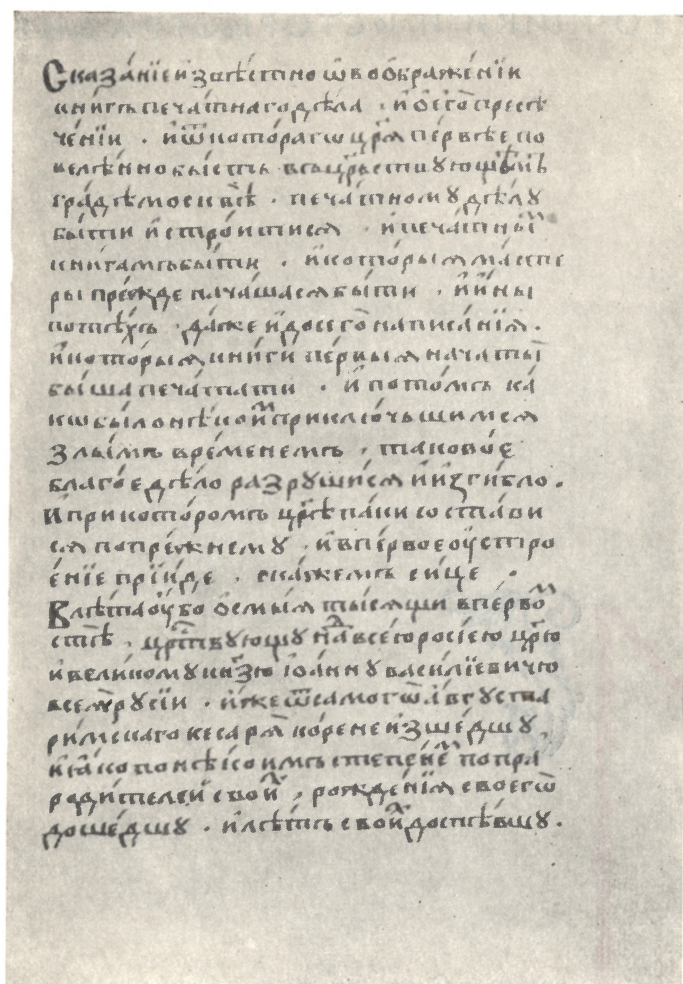 Сказа́нїе и҆звѣ́стно ѡ҆воѡбраже́нїи
кни́гъ печа́тнагодѣ́ла . и҆ ѡ҆ его̀ пресѣ
че́нїи . и҆ ѿкото́рагѡ цр҃ѧ̀ пе́рвѣе по
велѣ́нно бы́сть въцр҃ьствꙋющѣмъ
гра́дѣ москвѣ̀ . печа́тномꙋ дѣ́лꙋ
бы́ти и҆ стро́итисѧ . и҆ печа́тны̑
кни́гамъ бы́ти . и҆ кото́рыѧ ма́сте
ры пре́жде нача́шасѧ бы́ти . и҆ и҆ны̀
пото́мъ да́же и҆ досего̀ написа́нїѧ .
и҆ кото́рыѧ кни́ги пе́рвыѧ нача́ты̀
бы́ша печа́тати . и҆ пото́мъ ка́
кѡ бы́ло нѣ́кой приключьшимсѧ
злы́мъ вре́менемъ . таково́е
благо́е дѣ́ло разрꙋши́сѧ и҆ и҆зги́бло .
И҆ при кото́ромъ цр҃ѣ̀ па́ки соста́ви
сѧ попре́жнемꙋ . и҆ впе́рвое оу҆стро
е́нїе прїи́де . ска́жемъ си́це .
Влѣ́та оу҆́бо ѻ҆смы́ѧ ты́сѧщи впе́рво
стѣ̀ . цр҃твꙋющꙋ наⷣ всею росі́ею цр҃ю
и҆ вели́комꙋ кнѧ́зю і҆оа́ннꙋ васи́лїевичю
всеѧ̀ рꙋсі́и . и҆́же ѿ самогѡ̀ а҆́вгꙋста
ри́мскаго ке́сарѧ ко́рене и҆зше́дшꙋ ,
и҆ ꙗ҆́ко по нѣ́коимъ степе́неⷨ попра
роди́телей свои́ⷯ , рожде́нїѧ своегѡ̀
доше́дшꙋ . и҆ лѣ́тъ свои́ⷯ доспѣ́вшꙋ .